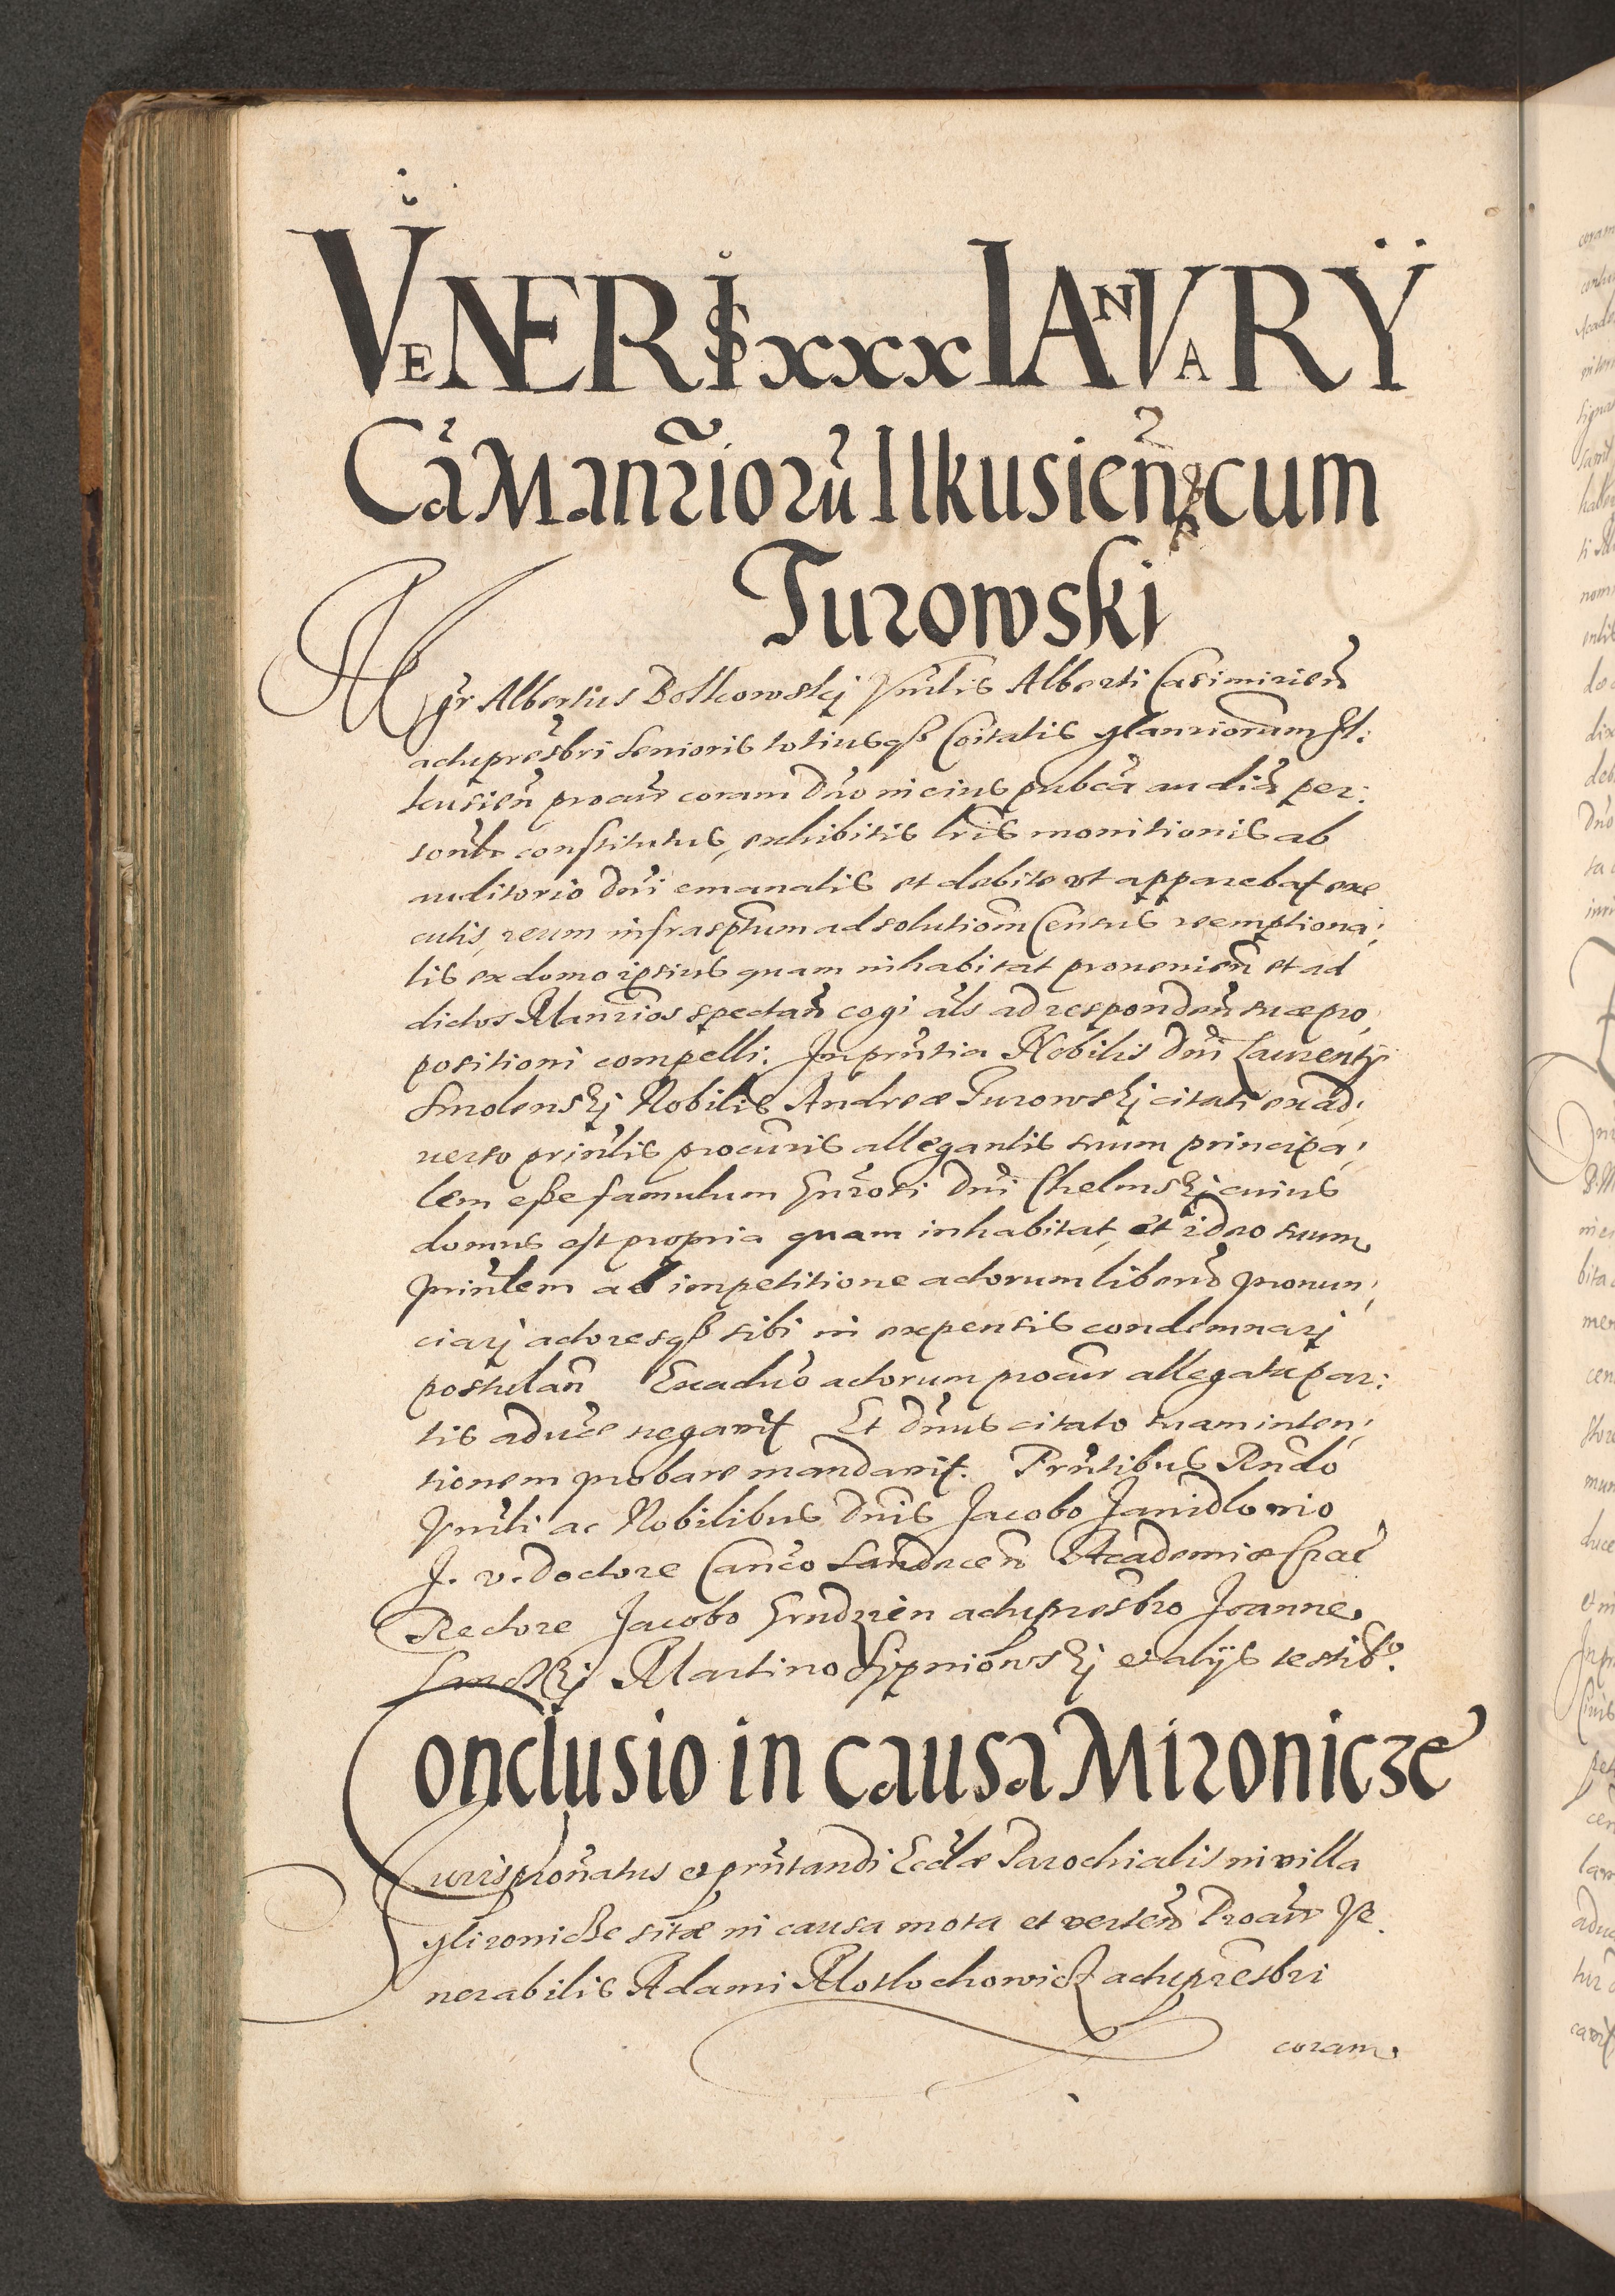 VENERIS xxx IANVARY
Ca Manrioru Ilkusien cum
Turowski
Mgr Albertus Boikowskj Vnlis Alberti Casimirien
actu presbri senioris totiusqß Coitatis Manrionum Il:
kusien procur coram Dno in eius pubca audia per:
sonlr constitutus, exhibitis lris monitionis ab
auditorio Dni emanatis et debite vt apparebat exe
cutis, reum infrasptum ad solutiom Census reemptiona:
lis ex domo ipsius quam inhabitat prouenien et ad
dictos Manrios spectan cogi als ad respondenn suæ pro,
positioni compelli. In pntia Nobilis Dni Laurentij
Smolenskj Nobilis Andreæ Turowskj citati ex ad,
uerso prinlis procuris allegantis suum principa,
lem eße famulum Gnrosi Dni Chelmskj cuius
domus est propria quam inhabitat, et ideo suum
prinlem ab impetitione actorum liberum pronun,
ciarj actoresqß sibi in expensis condemnarj
postulan Ex aduo actorum procur allegata par:
tis aduræ negavit Et Dnus citato suam inten,
tionem probare mandavit. Prntibus Rndo
Vnrli ac Nobilibus Dnis Jacobo Janidlovio
J. v. doctore Canco Sandecen Academiæ Crac
Rectore Jacobo Grudzien actu presbro Joanne
Martino Sypniowskj et alijs testibs.
Conclusio in causa Mironicze
Jurispronatus et prntandi Ecclæ Parochialis in villa
Mironicze sitæ in causa mota et verten Procur Ve
nerabilis Adami Mostochowicz actu presbri
coram